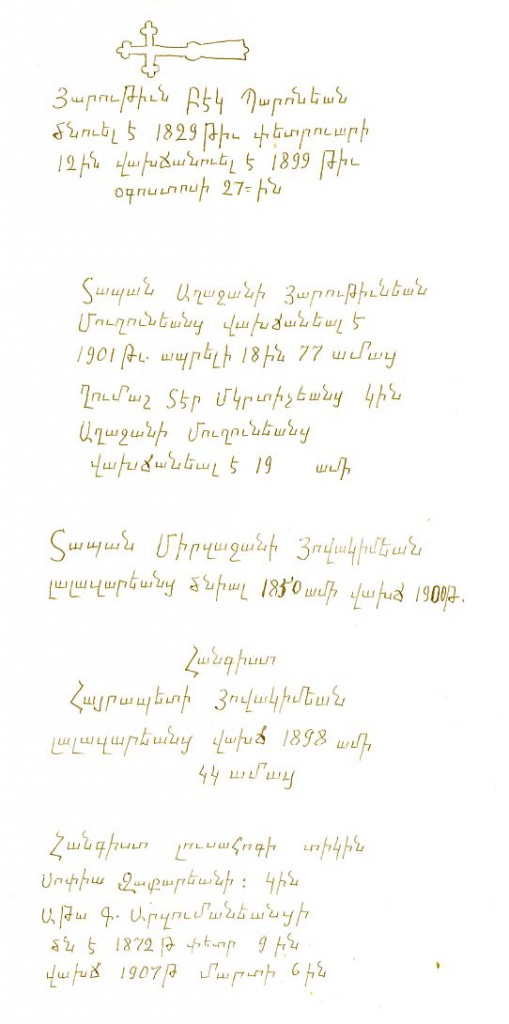 Յարութիւն Բէկ Պարոնեան
ծնուել է 1829 թիւ փետրուարի
12 ին վախճանուել է 1899 թիւ
օգոստոսի 27=ին
Տապան Աղաջանի Յարութիւնեան
Մուղունեանց վախճանեալ է
1901 թւ. ապրելի 18 ին 77 ամայ
Ղումաշ Տէր Մկրտիչեանց կին
Աղաջանի Մուղունեանց
վախճանեալ է 19 ամի
Տապան Միրզաջանի Յովակիմեան
լալավարեանց ծնիալ 1850 ամի վախճ 1900թ.
Հանգիստ
Հայրապետի Յովակիմեան
լալավարեանց վախճ 1898 ամի
44 ամայ
Հանգիստ լուսահոգի տիկին
Սոփիա Զաքարեանի: կին
Աթա Գ. Արզումանեանցի
ծն է 1872 թ փետր 9 ին
վախճ 1907 թ մարտի 6 ին